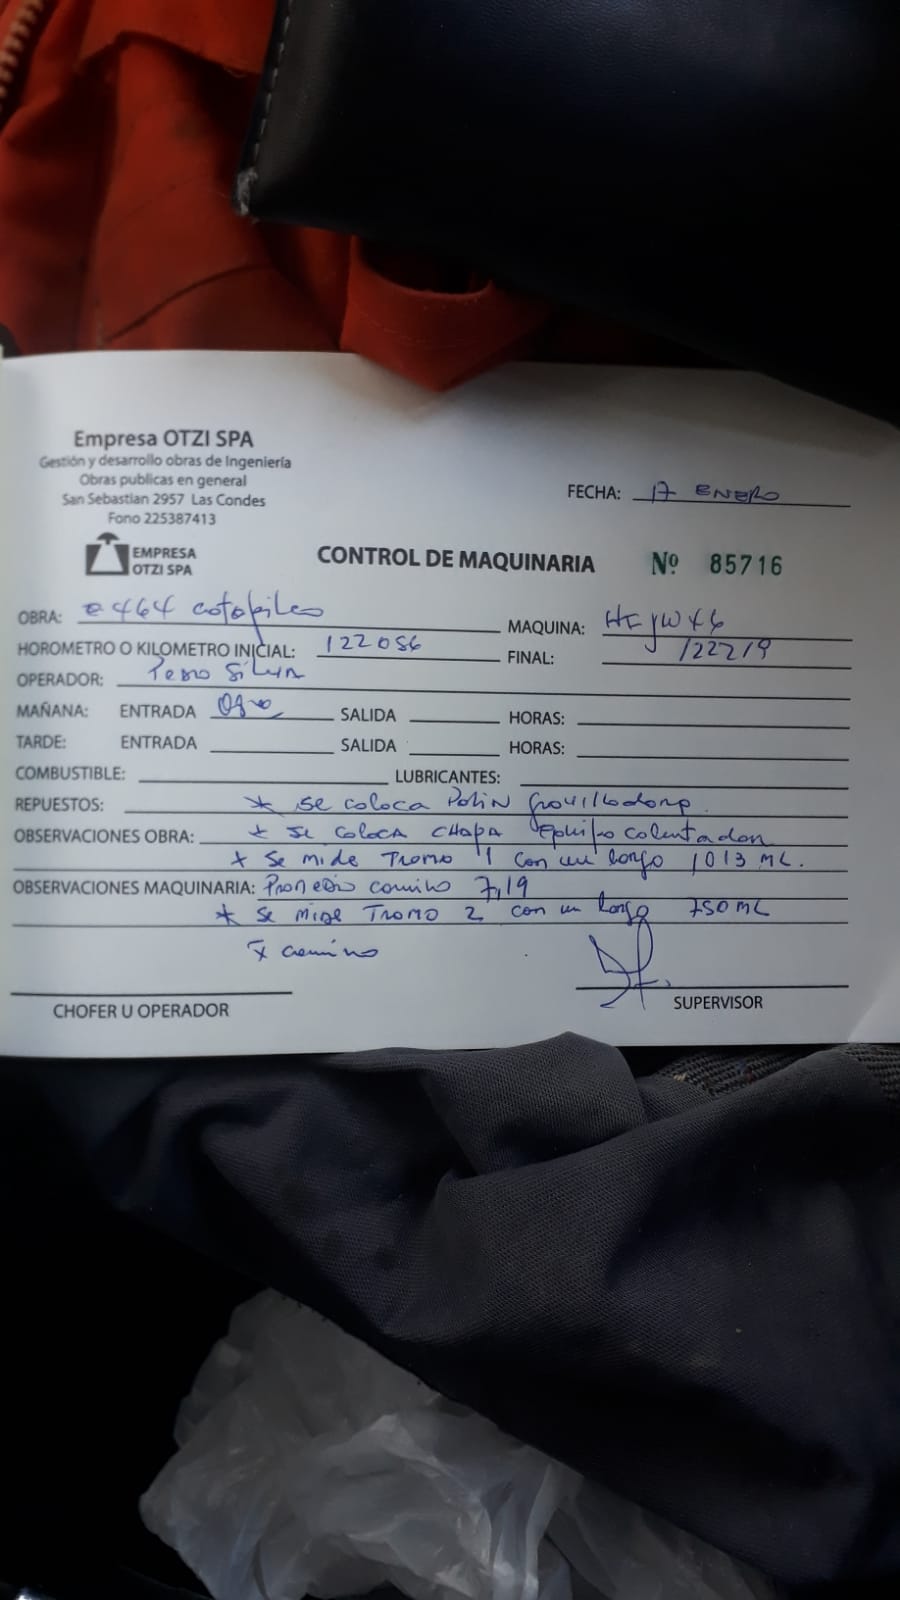 Empresa OTZI SPA
Gestión y desarrollo obras de Ingeniería
Obras publicas en general
San Sebastian 2957 Las Condes
Fono 225387413
FECHA: 17 ENERO
EMPRESA
OTZI SPA
CONTROL DE MAQUINARIA Nº 85716
OBRA: e 464 MAQUINA:
HOROMETRO O KILOMETRO INICIAL: 122056 FINAL: 122219
OPERADOR: Pedro Silva
MAÑANA: ENTRADA SALIDA HORAS:
TARDE: ENTRADA SALIDA HORAS:
COMBUSTIBLE: LUBRICANTES:
REPUESTOS: * Se coloca Polin
OBSERVACIONES OBRA: * Se coloca CHAPA
* Se mide Tramo 1 con un largo 1013 ML.
OBSERVACIONES MAQUINARIA: Promedio camino 7,19
* Se mide Tramo 2 con un largo 750 ML
camino
CHOFER U OPERADOR
SUPERVISOR